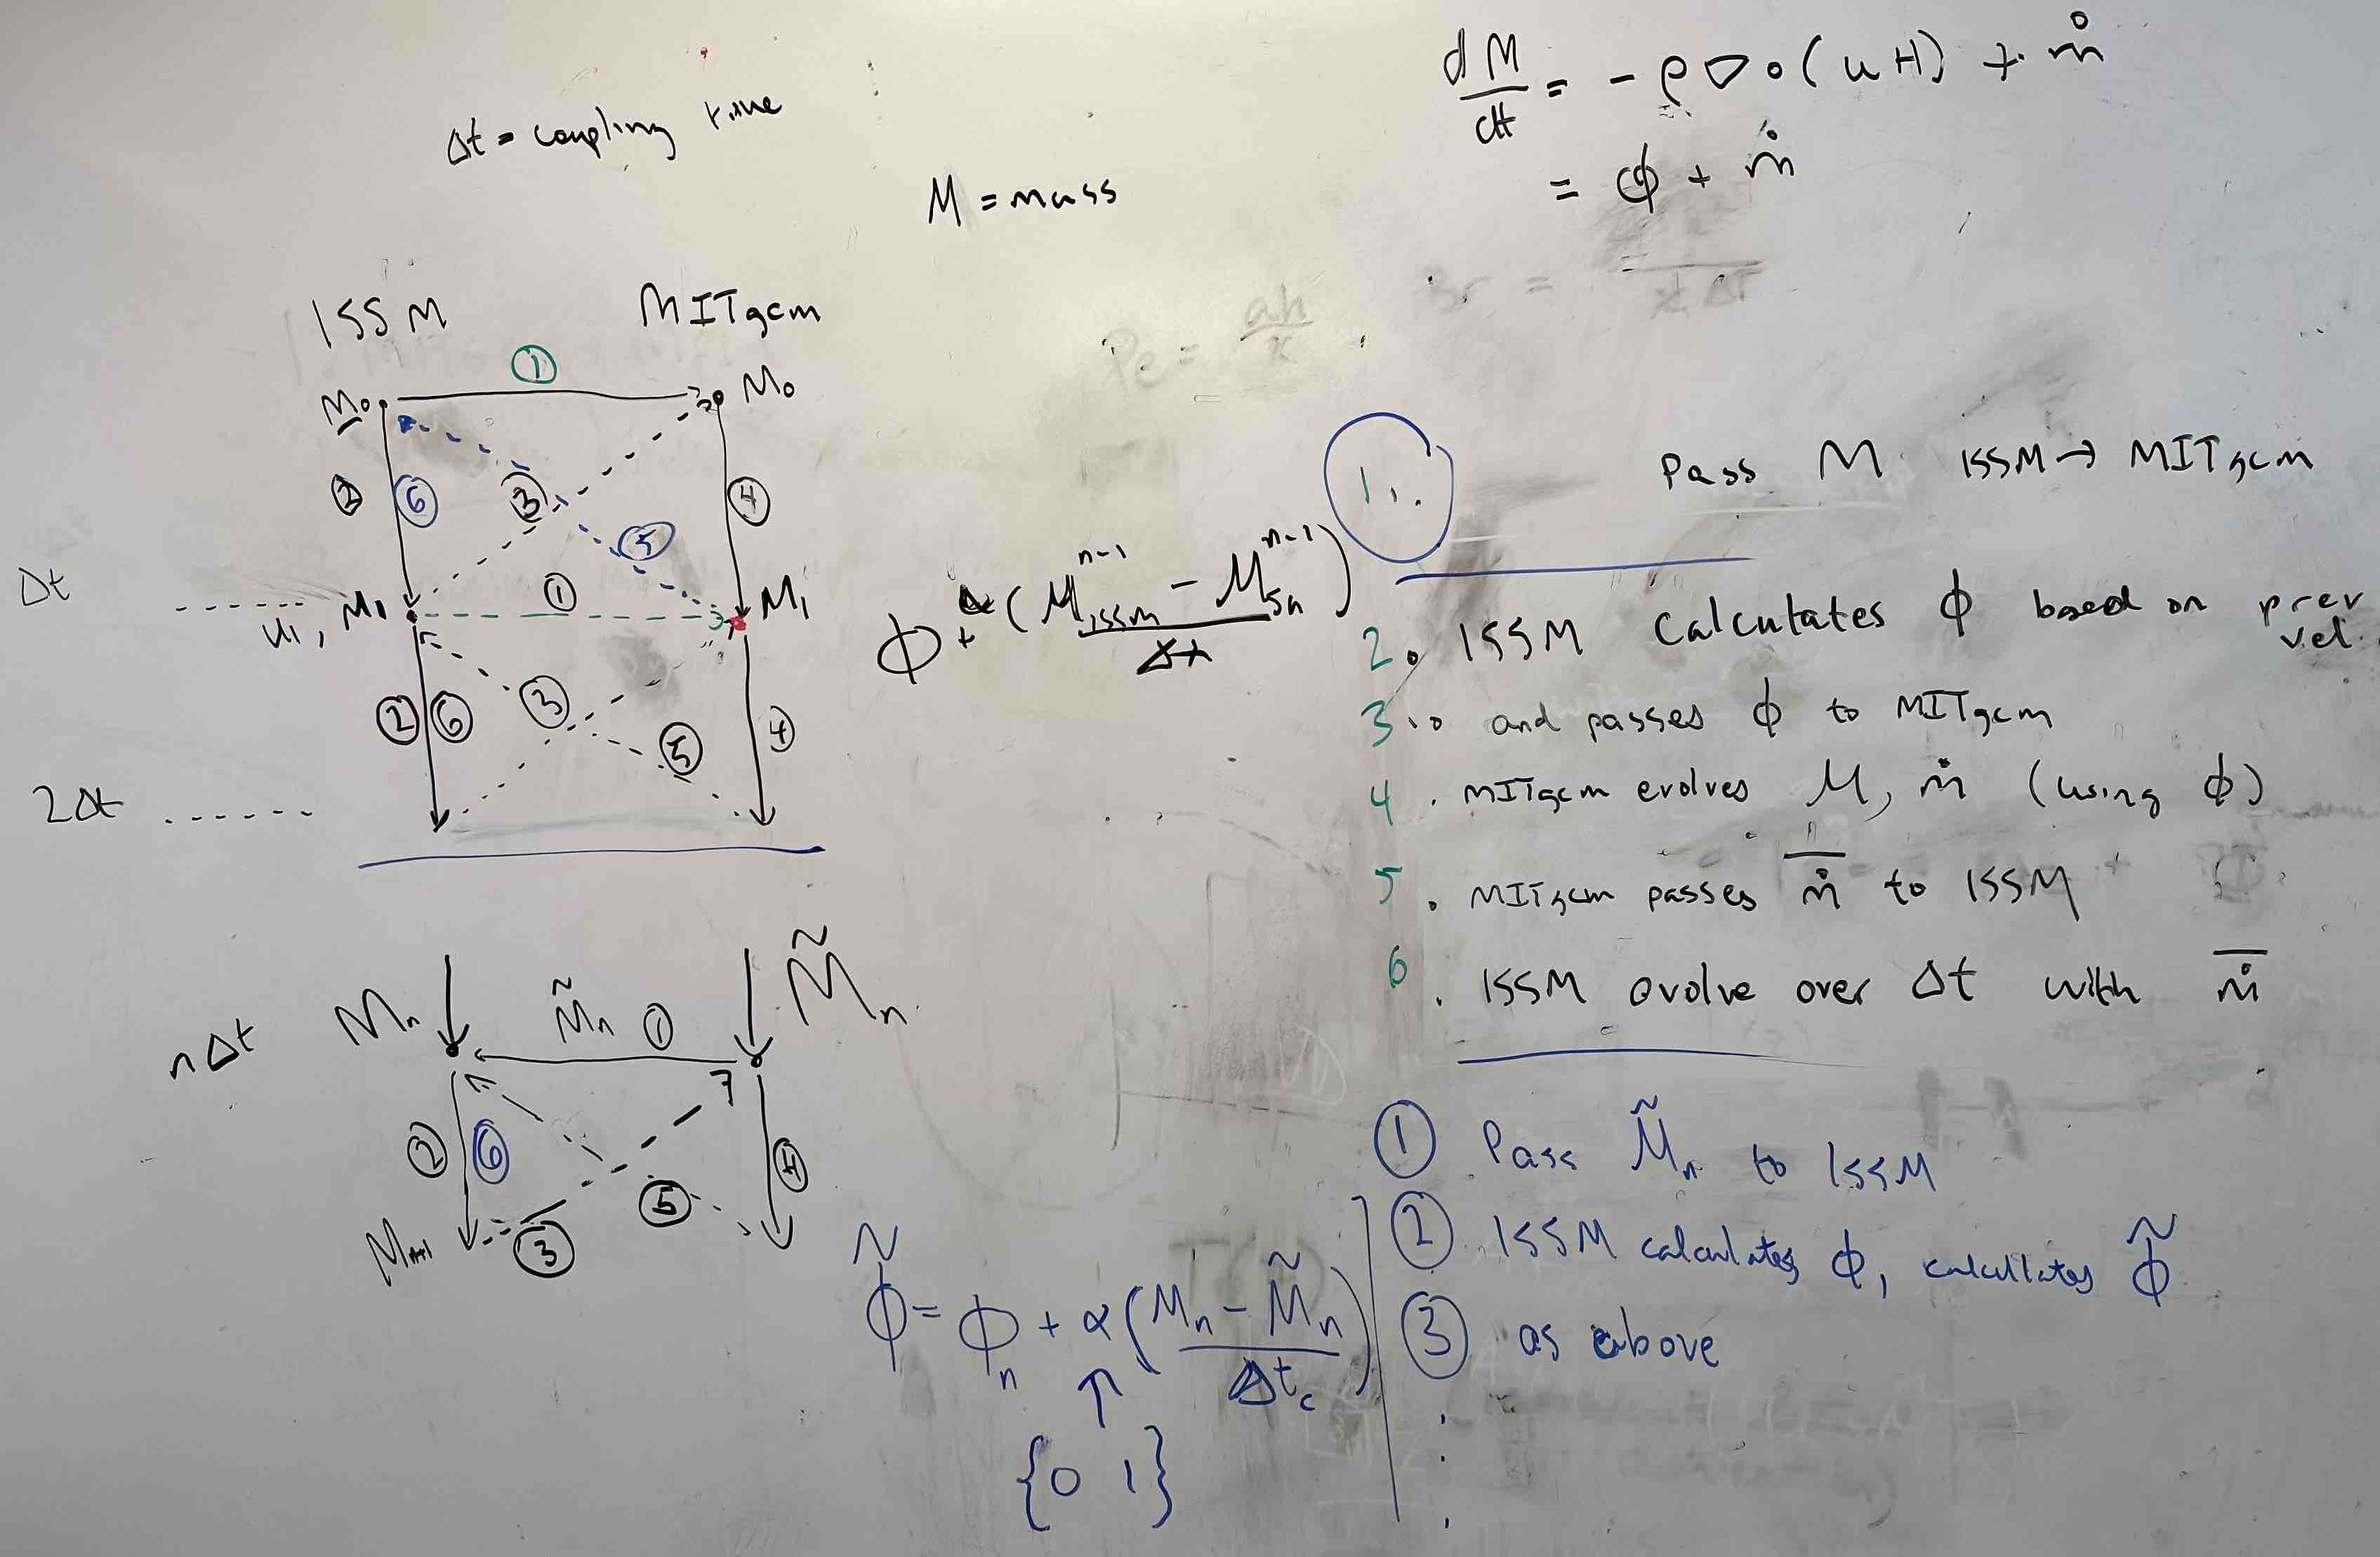 dM/dt = - ρ ∇∘(uH) + ṁ
= ϕ + ṁ
Δt = coupling time
M = mass
Pe = 
Br =
ISSM MITgcm
①
M₀ M₀
② ⑥ ③ ④
⑤
Δt u₁, M₁ ① M₁
② ⑥ ③ ⑤ ④
2Δt
ϕ + α (M_ISSM^{n-1} - M^{n-1}) / Δt
1. Pass M ISSM → MITgcm
2. ISSM Calculates ϕ based on prev vel.
3. and passes ϕ to MITgcm
4. MITgcm evolves M, ṁ (using ϕ)
5. MITgcm passes \overline{ṁ} to ISSM
6. ISSM evolve over Δt with \overline{ṁ}
nΔt Mₙ M̃ₙ ① M̃ₙ
② ⑥ ④
⑤
Mₙ₊₁ ③
ϕ̃ = ϕₙ + α (Mₙ - M̃ₙ) / Δt_c
{0 1}
① Pass M̃ₙ to ISSM
② ISSM calculates ϕ, calcullates ϕ̃
③ as above